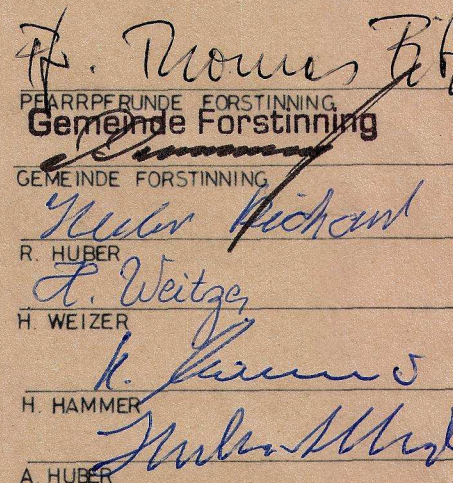 Pf. Thomas
PFARRPFRUNDE FORSTINNING
Gemeinde Forstinning
GEMEINDE FORSTINNING
Huber Richard
R. HUBER
H. Weitzer
H. WEIZER
H.
H. HAMMER
A HUBER